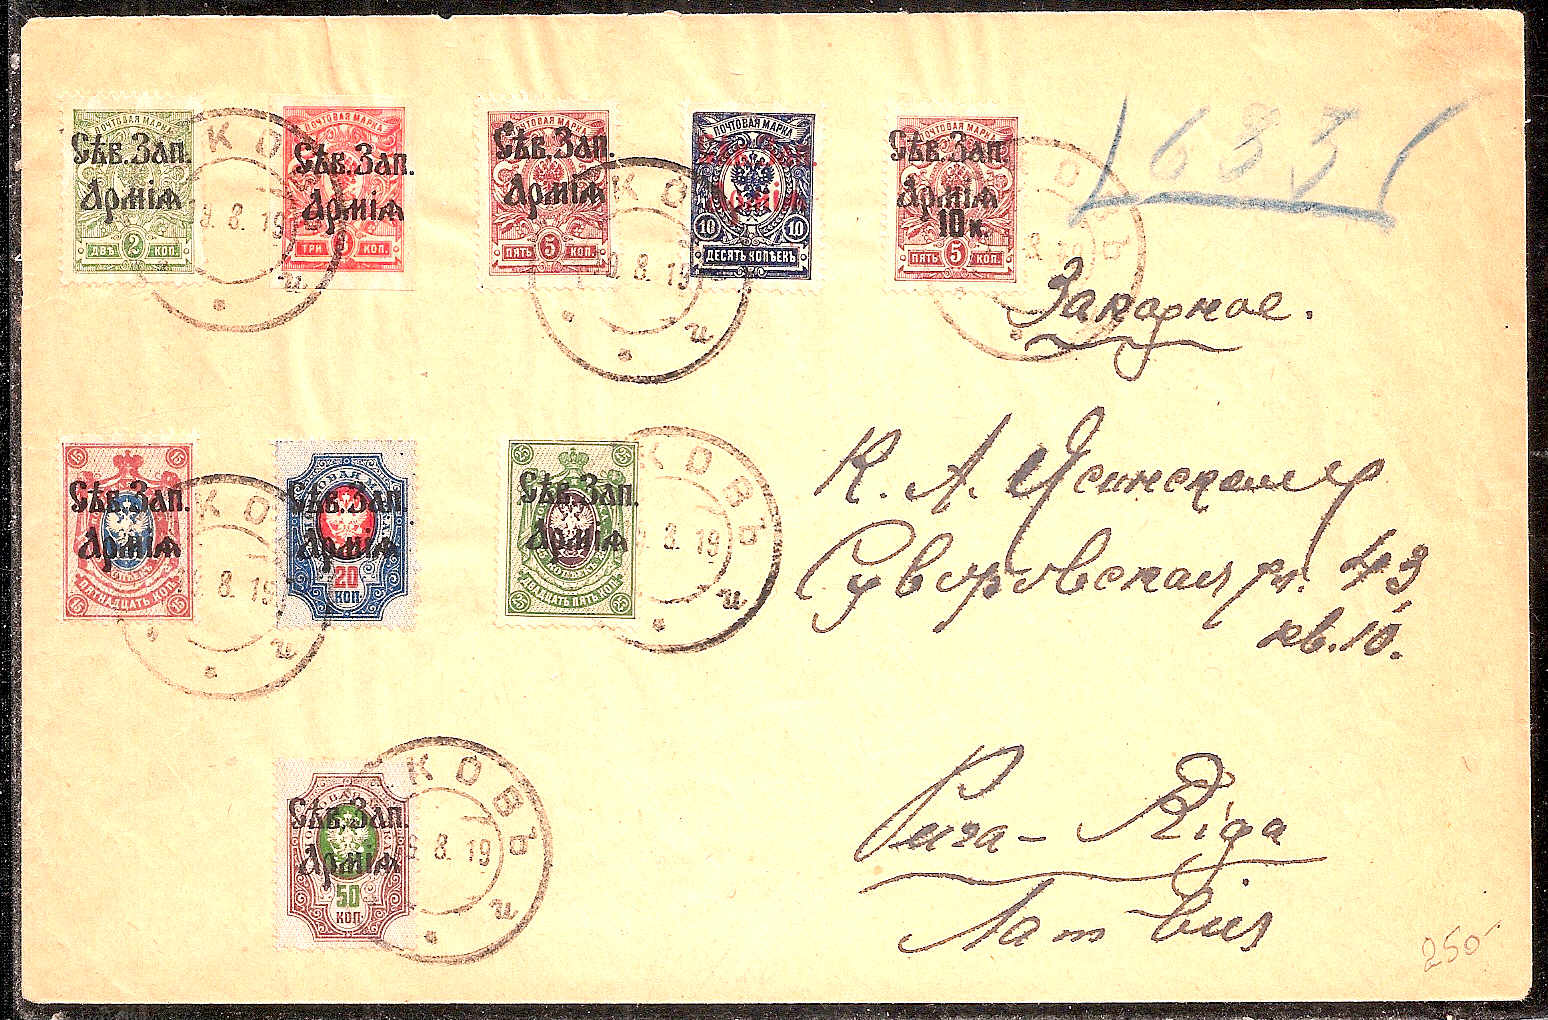 ПОЧТОВАЯ МАРКА
Сѣв. Зап.
Армія
ДВѢ 2 КОП.
ПОЧТОВАЯ МАРКА
Сѣв. Зап.
Армія
ТРИ 3 КОП.
ПОЧТОВАЯ МАРКА
Сѣв. Зап.
Армія
ПЯТЬ 5 КОП.
ПОЧТОВАЯ МАРКА
Армія
10 10
ДЕСЯТЬ КОПѢЕКЪ
ПОЧТОВАЯ МАРКА
Сѣв. Зап.
Армія
10 к.
ПЯТЬ 5 КОП.
683
КО
8. 19
и
КО
8. 19
и
ОВЪ
8. 19
Заказное.
15 15
Сѣв. Зап.
Армія
15 ПЯТНАДЦАТЬ КОП. 15
КО
8. 19
и
Сѣв. Зап.
Армія
20
КОП.
25 25
Сѣв. Зап.
Армія
25 ДВАДЦАТЬ ПЯТЬ КОП. 25
КОВЪ
8. 19
и
К. А. Ясинскому
Суворовская ул. 43
кв. 10.
Сѣв. Зап.
Армія
50
КОП.
КОВЪ
8. 19
и
Рига – Riga
Латвия
250-